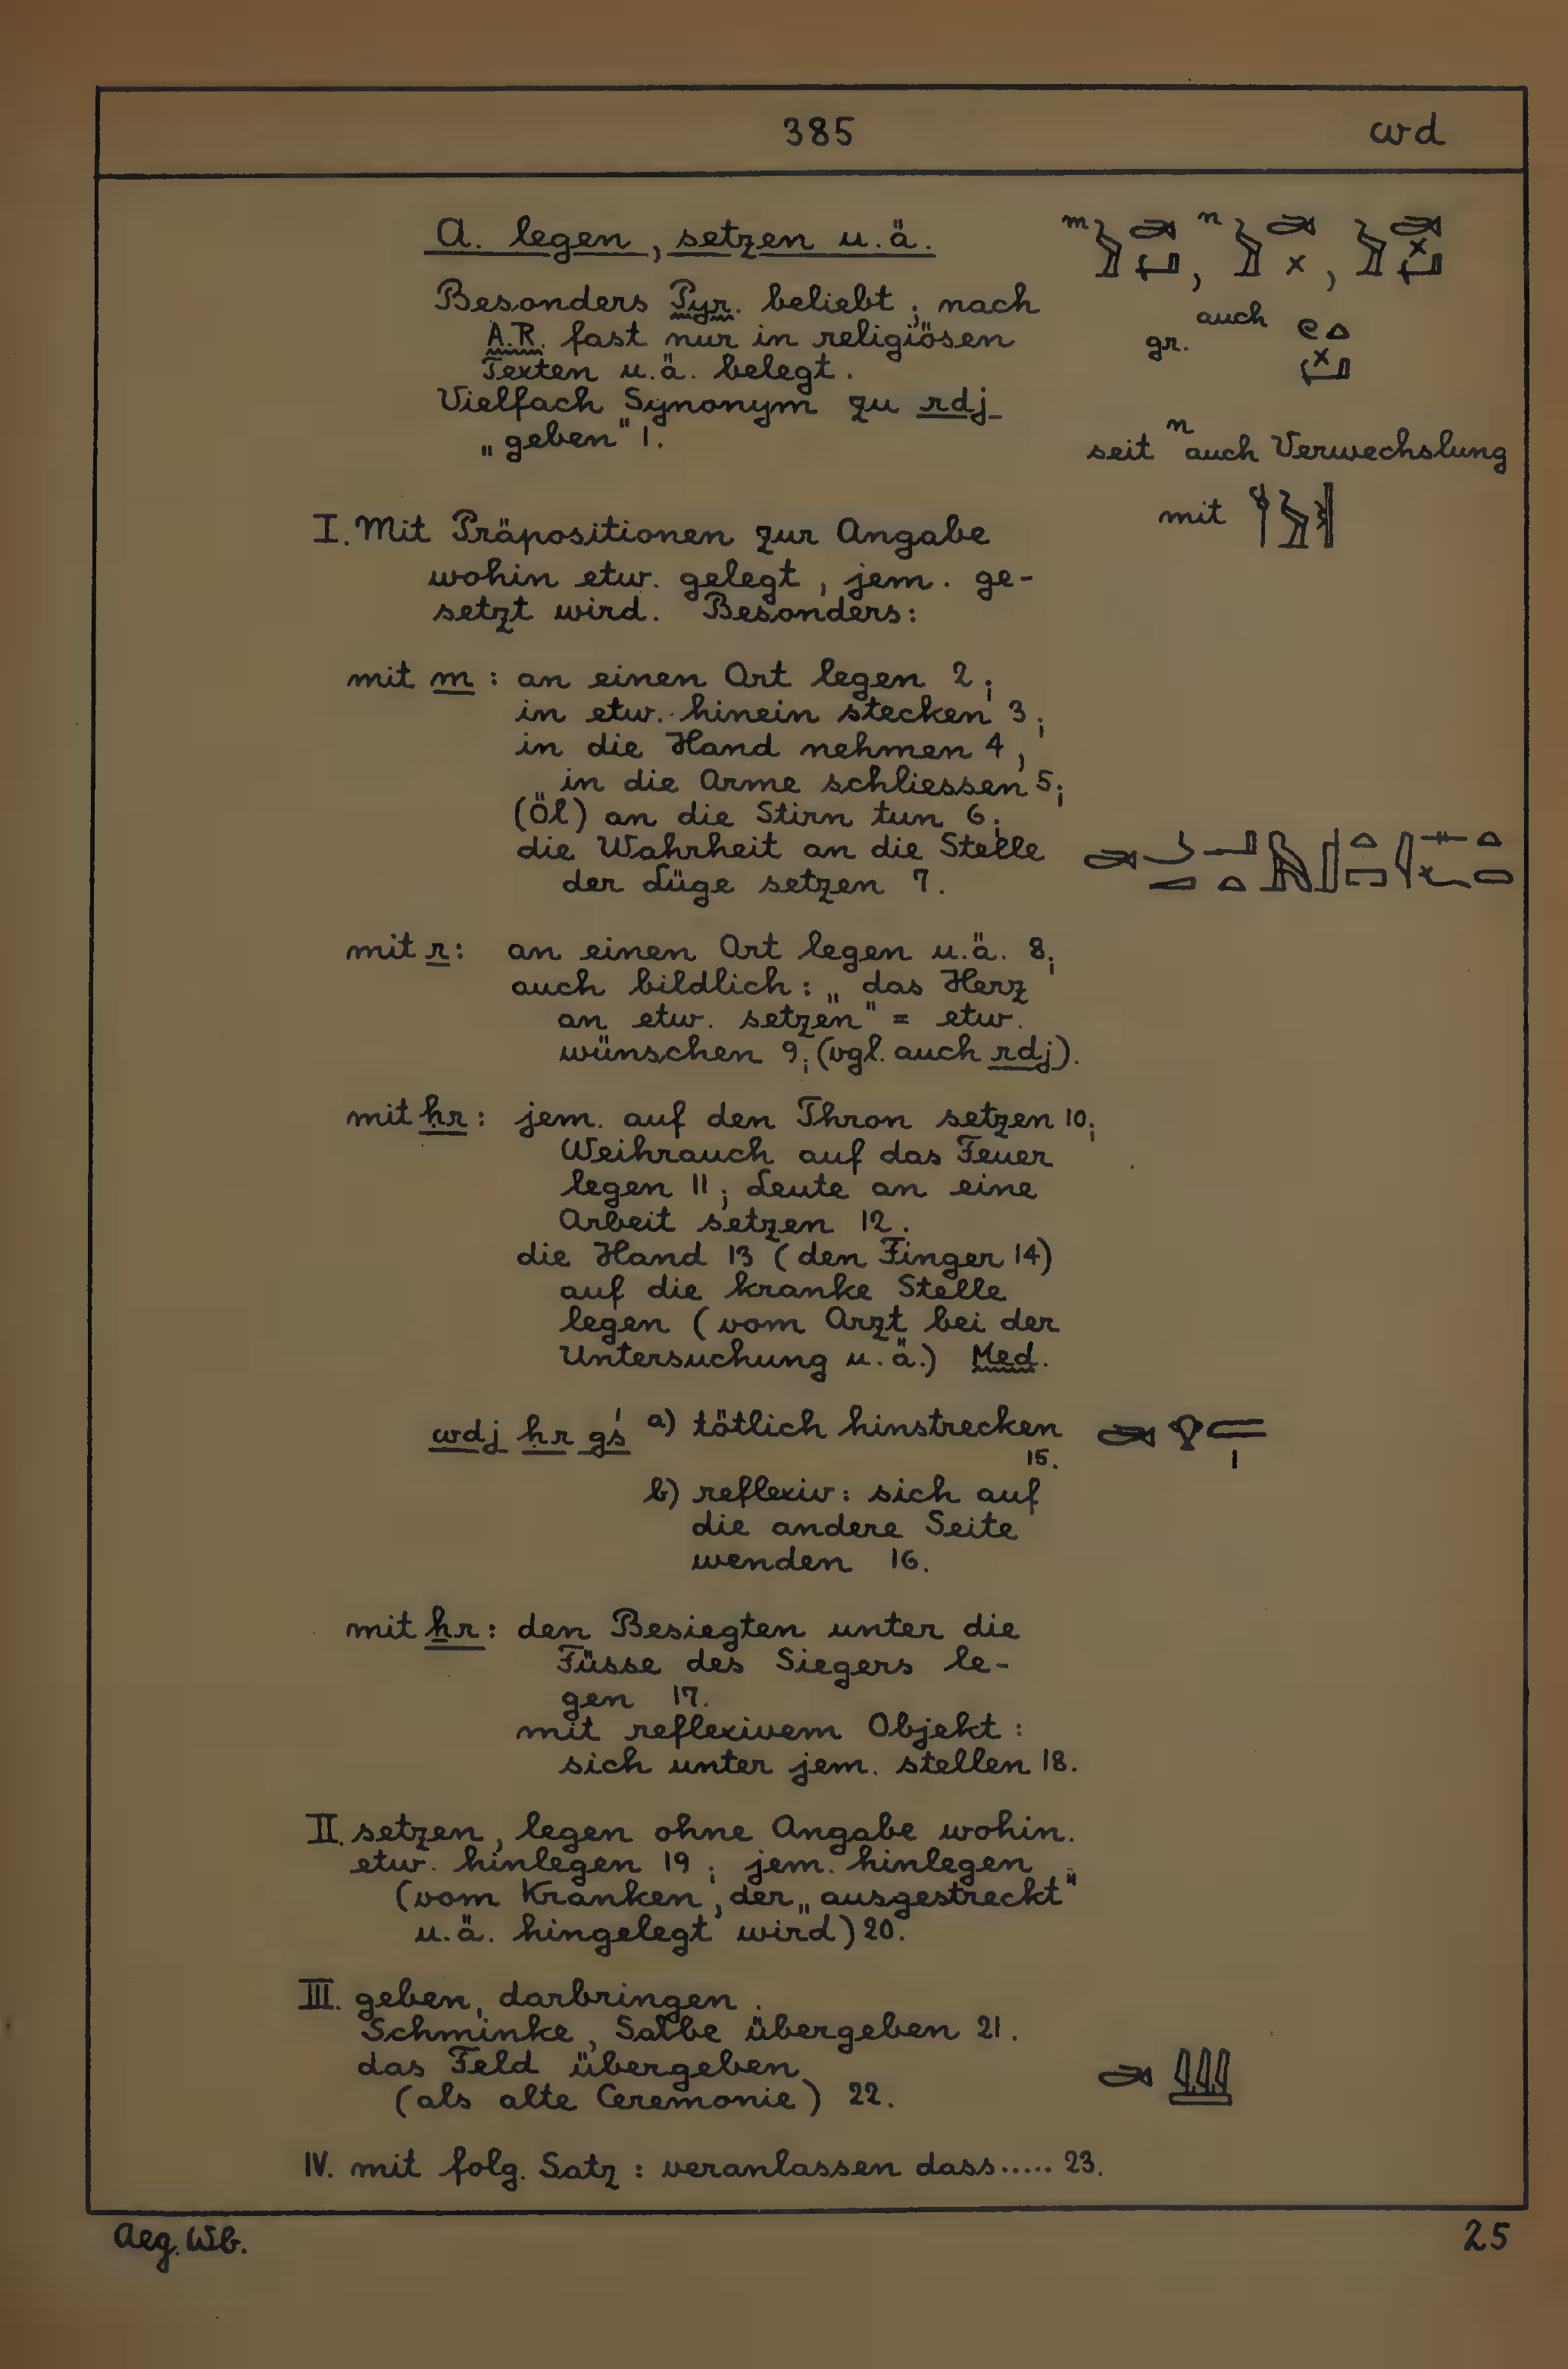 385
wd
A. legen, setzen u.ä.
Besonders Pyr. beliebt; nach
A.R. fast nur in religiösen
Texten u.ä. belegt.
Vielfach Synonym zu rdj
„geben" 1.
m
n
gr. auch
seit n auch Verwechslung
mit
I. Mit Präpositionen zur Angabe
wohin etw. gelegt, jem. ge-
setzt wird. Besonders:
mit m: an einen Ort legen 2;
in etw. hinein stecken 3;
in die Hand nehmen 4,
in die Arme schliessen 5;
(Öl) an die Stirn tun 6;
die Wahrheit an die Stelle
der Lüge setzen 7.
mit r: an einen Ort legen u.ä. 8;
auch bildlich: „das Herz
an etw. setzen" = etw.
wünschen 9; (vgl. auch rdj).
mit ḥr: jem. auf den Thron setzen 10;
Weihrauch auf das Feuer
legen 11; Leute an eine
Arbeit setzen 12.
die Hand 13 (den Finger 14)
auf die kranke Stelle
legen (vom Arzt bei der
Untersuchung u.ä.) Med.
wdj ḥr gś a) tötlich hinstrecken
15.
b) reflexiv: sich auf
die andere Seite
wenden 16.
mit ẖr: den Besiegten unter die
Füsse des Siegers le-
gen 17.
mit reflexivem Objekt:
sich unter jem. stellen 18.
II. setzen, legen ohne Angabe wohin.
etw. hinlegen 19; jem. hinlegen
(vom Kranken, der „ausgestreckt"
u.ä. hingelegt wird) 20.
III. geben, darbringen.
Schminke, Salbe übergeben 21.
das Feld übergeben
(als alte Ceremonie) 22.
IV. mit folg. Satz: veranlassen dass..... 23.
Aeg. Wb.
25